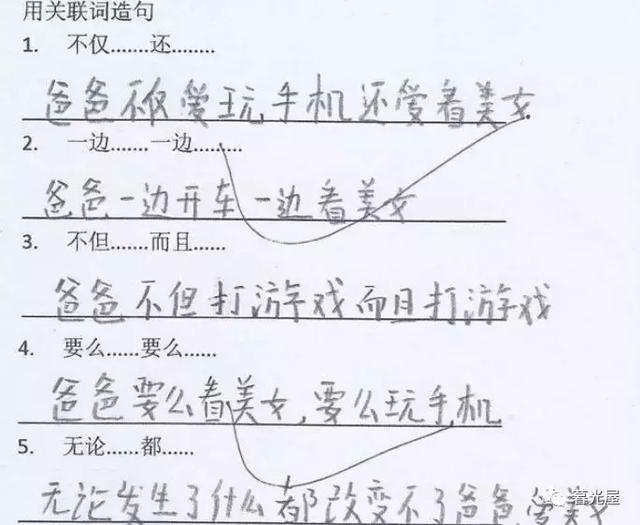 用关联词造句
1. 不仅.......还........
爸爸不仅爱玩手机还爱看美女
2. 一边.......一边.........
爸爸一边开车一边看美女
3. 不但.......而且......
爸爸不但打游戏而且打游戏
4. 要么......要么......
爸爸要么看美女,要么玩手机
5. 无论......都......
无论发生了什么都改变不了爸爸爱美女
暮光屋